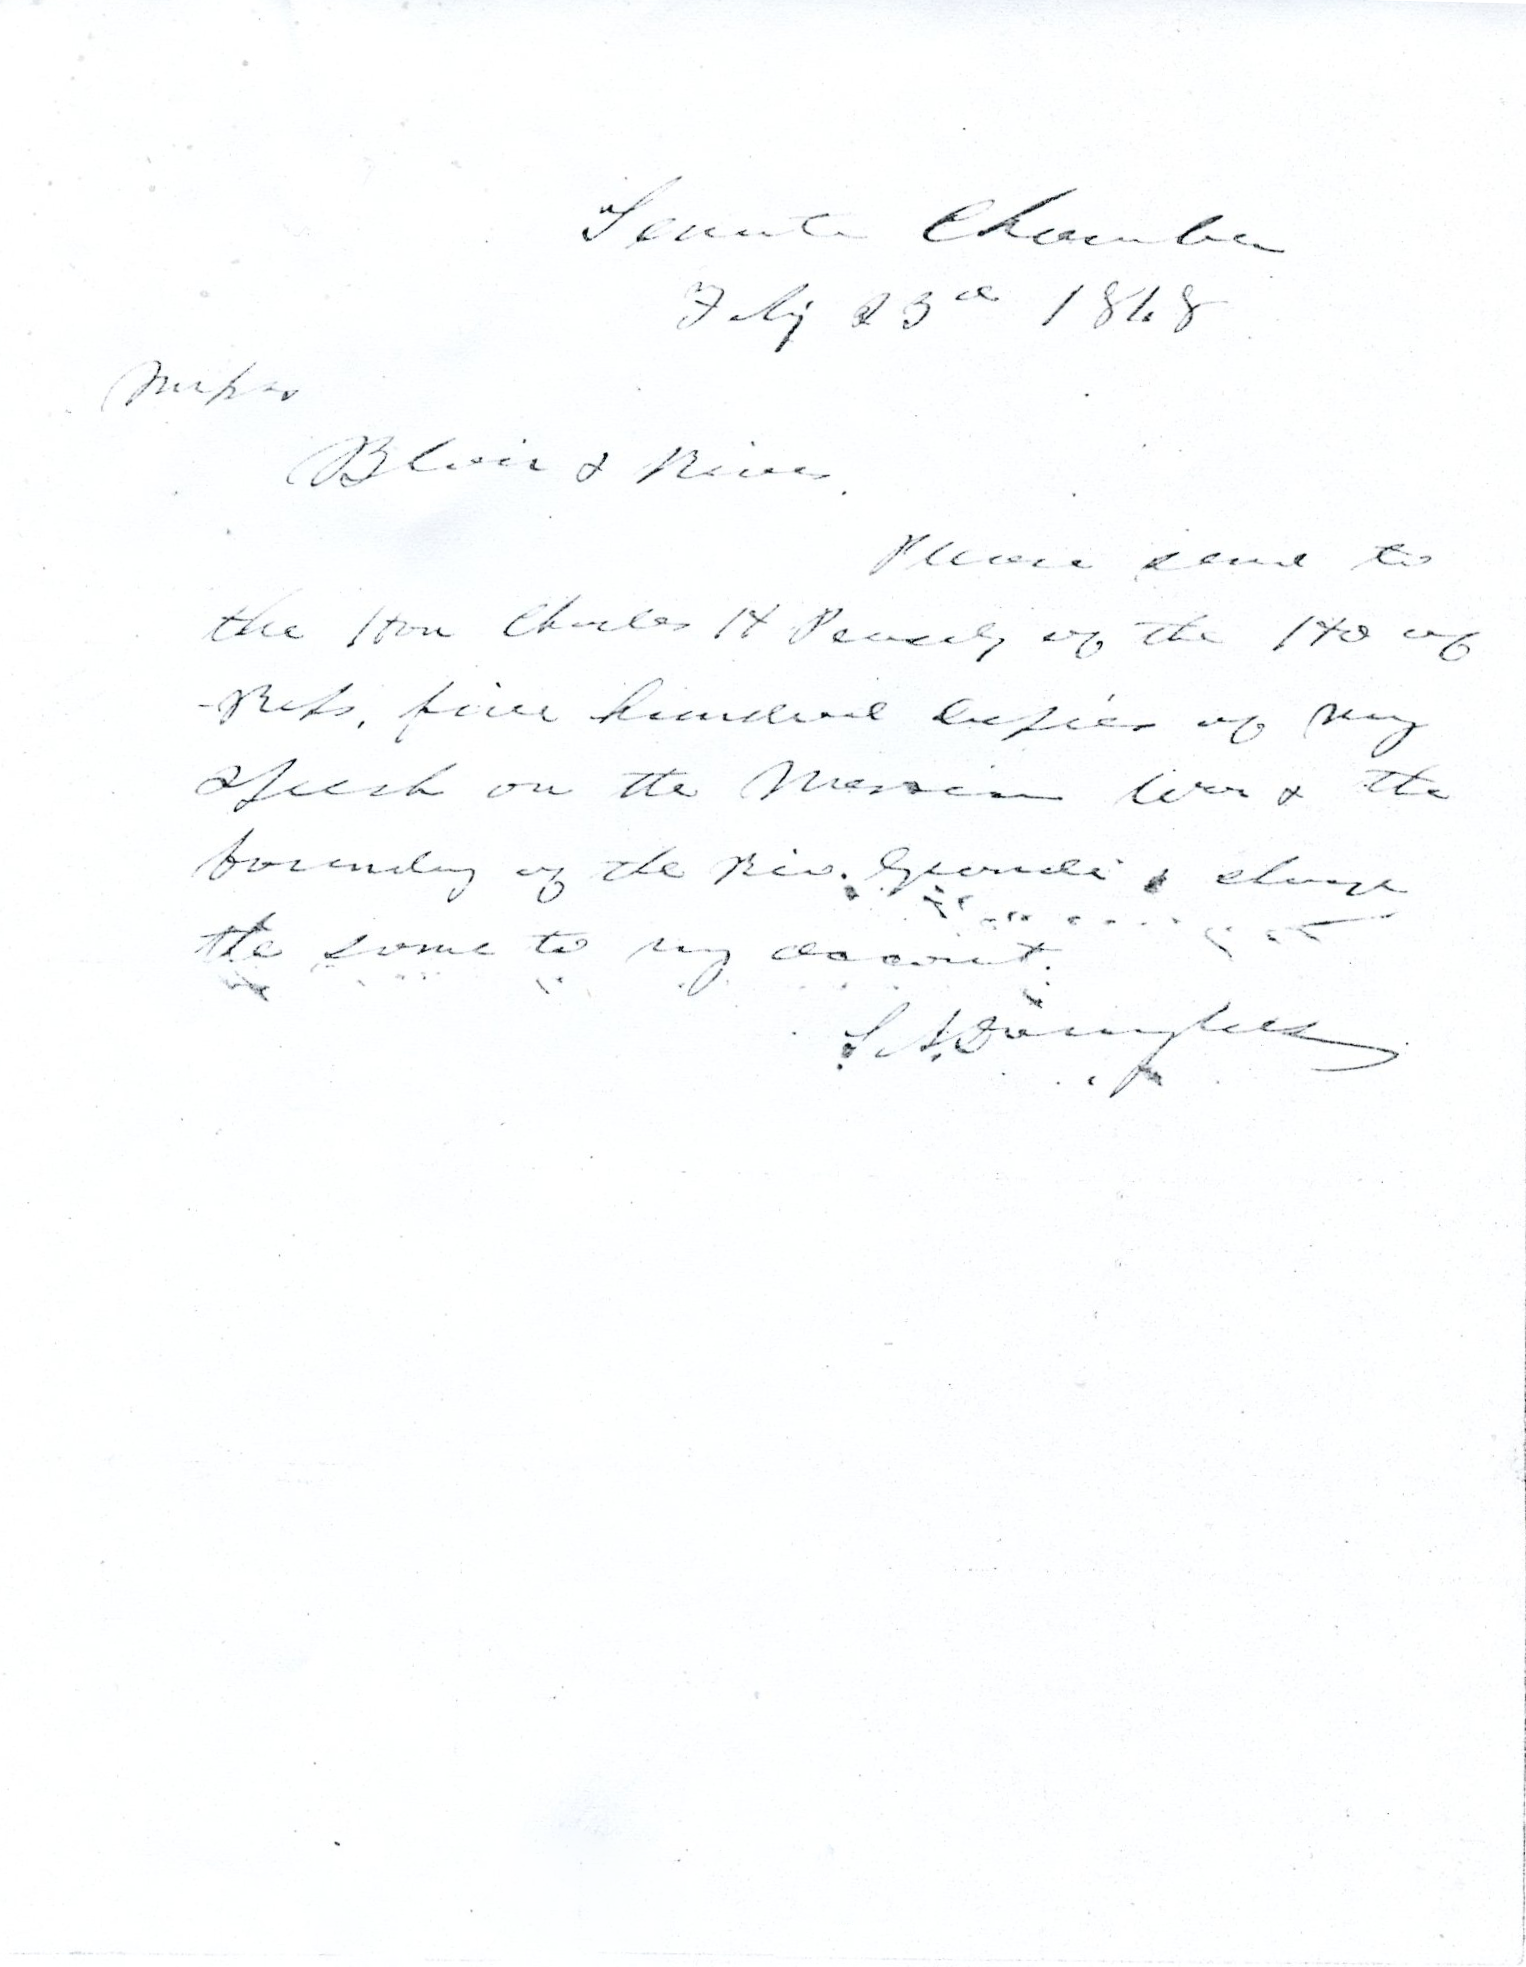 Senate Chamber
Feby 23d 1848
Messrs
Blair & Rives.
Please send to
the Hon Charles H Peasly of the Ho of
Reps. five hundred copies of my
Speech on the Mexican War & the
boundry of the Rio Grande & charge
the same to my account.
S A Douglass